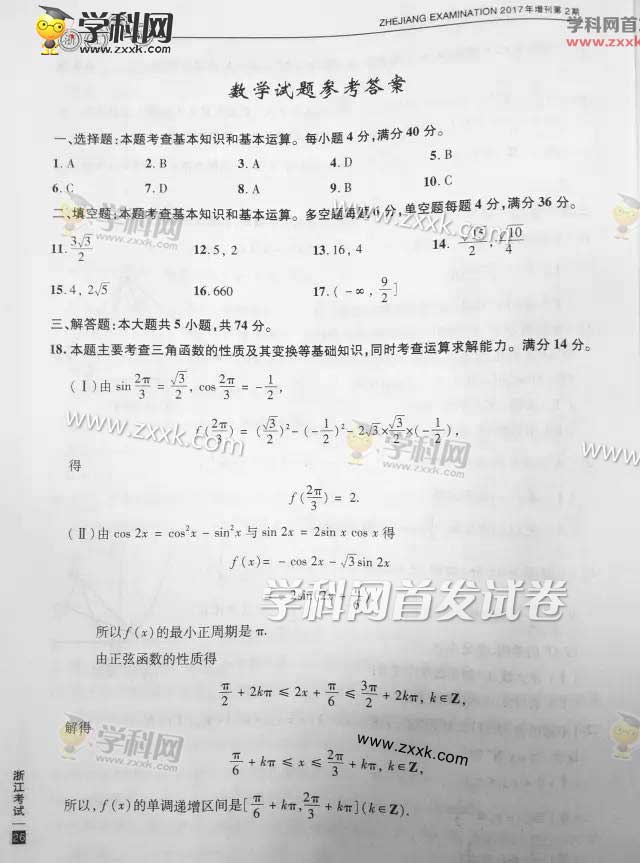 学科网
www.zxxk.com
ZHEJIANG EXAMINATION 2017年增刊第2期
学科网首发
www.zxxk.
数学试题参考答案
一、选择题:本题考查基本知识和基本运算。每小题4分,满分40分。
1. A 2. B 3. A 4. D 5. B
6. C 7. D 8. A 9. B 10. C
二、填空题:本题考查基本知识和基本运算。多空题每题6分,单空题每题4分,满分36分。
11. 3√3/2 12. 5, 2 13. 16, 4 14. √15/2, √10/4
15. 4, 2√5 16. 660 17. (-∞, 9/2]
三、解答题:本大题共5小题,共74分。
18. 本题主要考查三角函数的性质及其变换等基础知识,同时考查运算求解能力。满分14分。
(Ⅰ)由 sin 2π/3 = √3/2, cos 2π/3 = -1/2,
f(2π/3) = (√3/2)²-(-1/2)²-2√3×√3/2×(-1/2),
得
f(2π/3) = 2.
(Ⅱ)由 cos 2x = cos²x - sin²x 与 sin 2x = 2sin x cos x 得
f(x)= - cos 2x - √3 sin 2x
学科网首发试卷
所以f(x)的最小正周期是π.
由正弦函数的性质得
π/2 + 2kπ ≤ 2x + π/6 ≤ 3π/2 + 2kπ, k∈Z,
解得
π/6 + kπ ≤ x ≤ 2π/3 + kπ, k∈Z,
所以, f(x)的单调递增区间是[π/6 + kπ, 2π/3 + kπ](k∈Z).
浙江考试
26
www.zxxk.com
学科网
zxxk.com
www.zxxk.com
学科网
zxxk.com
学科网
www.zxxk.com